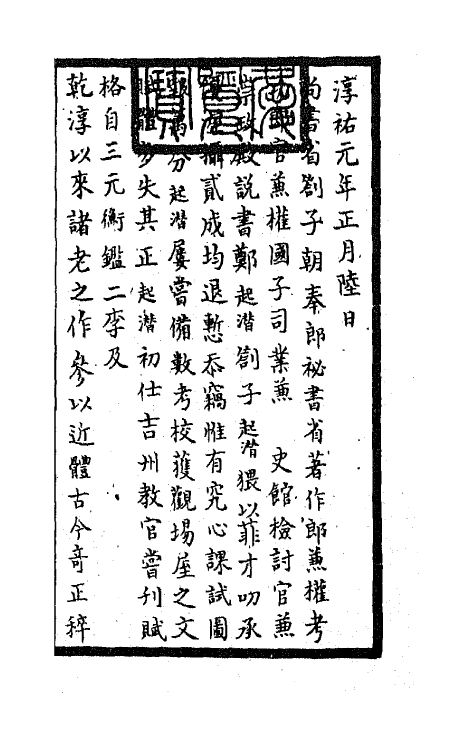 淳祐元年正月陸日
尚書省劄子朝奉郎秘書省著作郎兼權考
官兼權國子司業兼 史館檢討官兼
崇政殿說書鄭起潛劄子起潛猥以菲才叨承
攝貳成均退慙忝竊惟有究心課試圖
分起潛屢嘗備數考校獲觀場屋之文
賦體多失其正起潛初仕吉州教官嘗刋賦
格自三元衡鑑二李及
乾淳以來諸老之作參以近體古今竒正稡